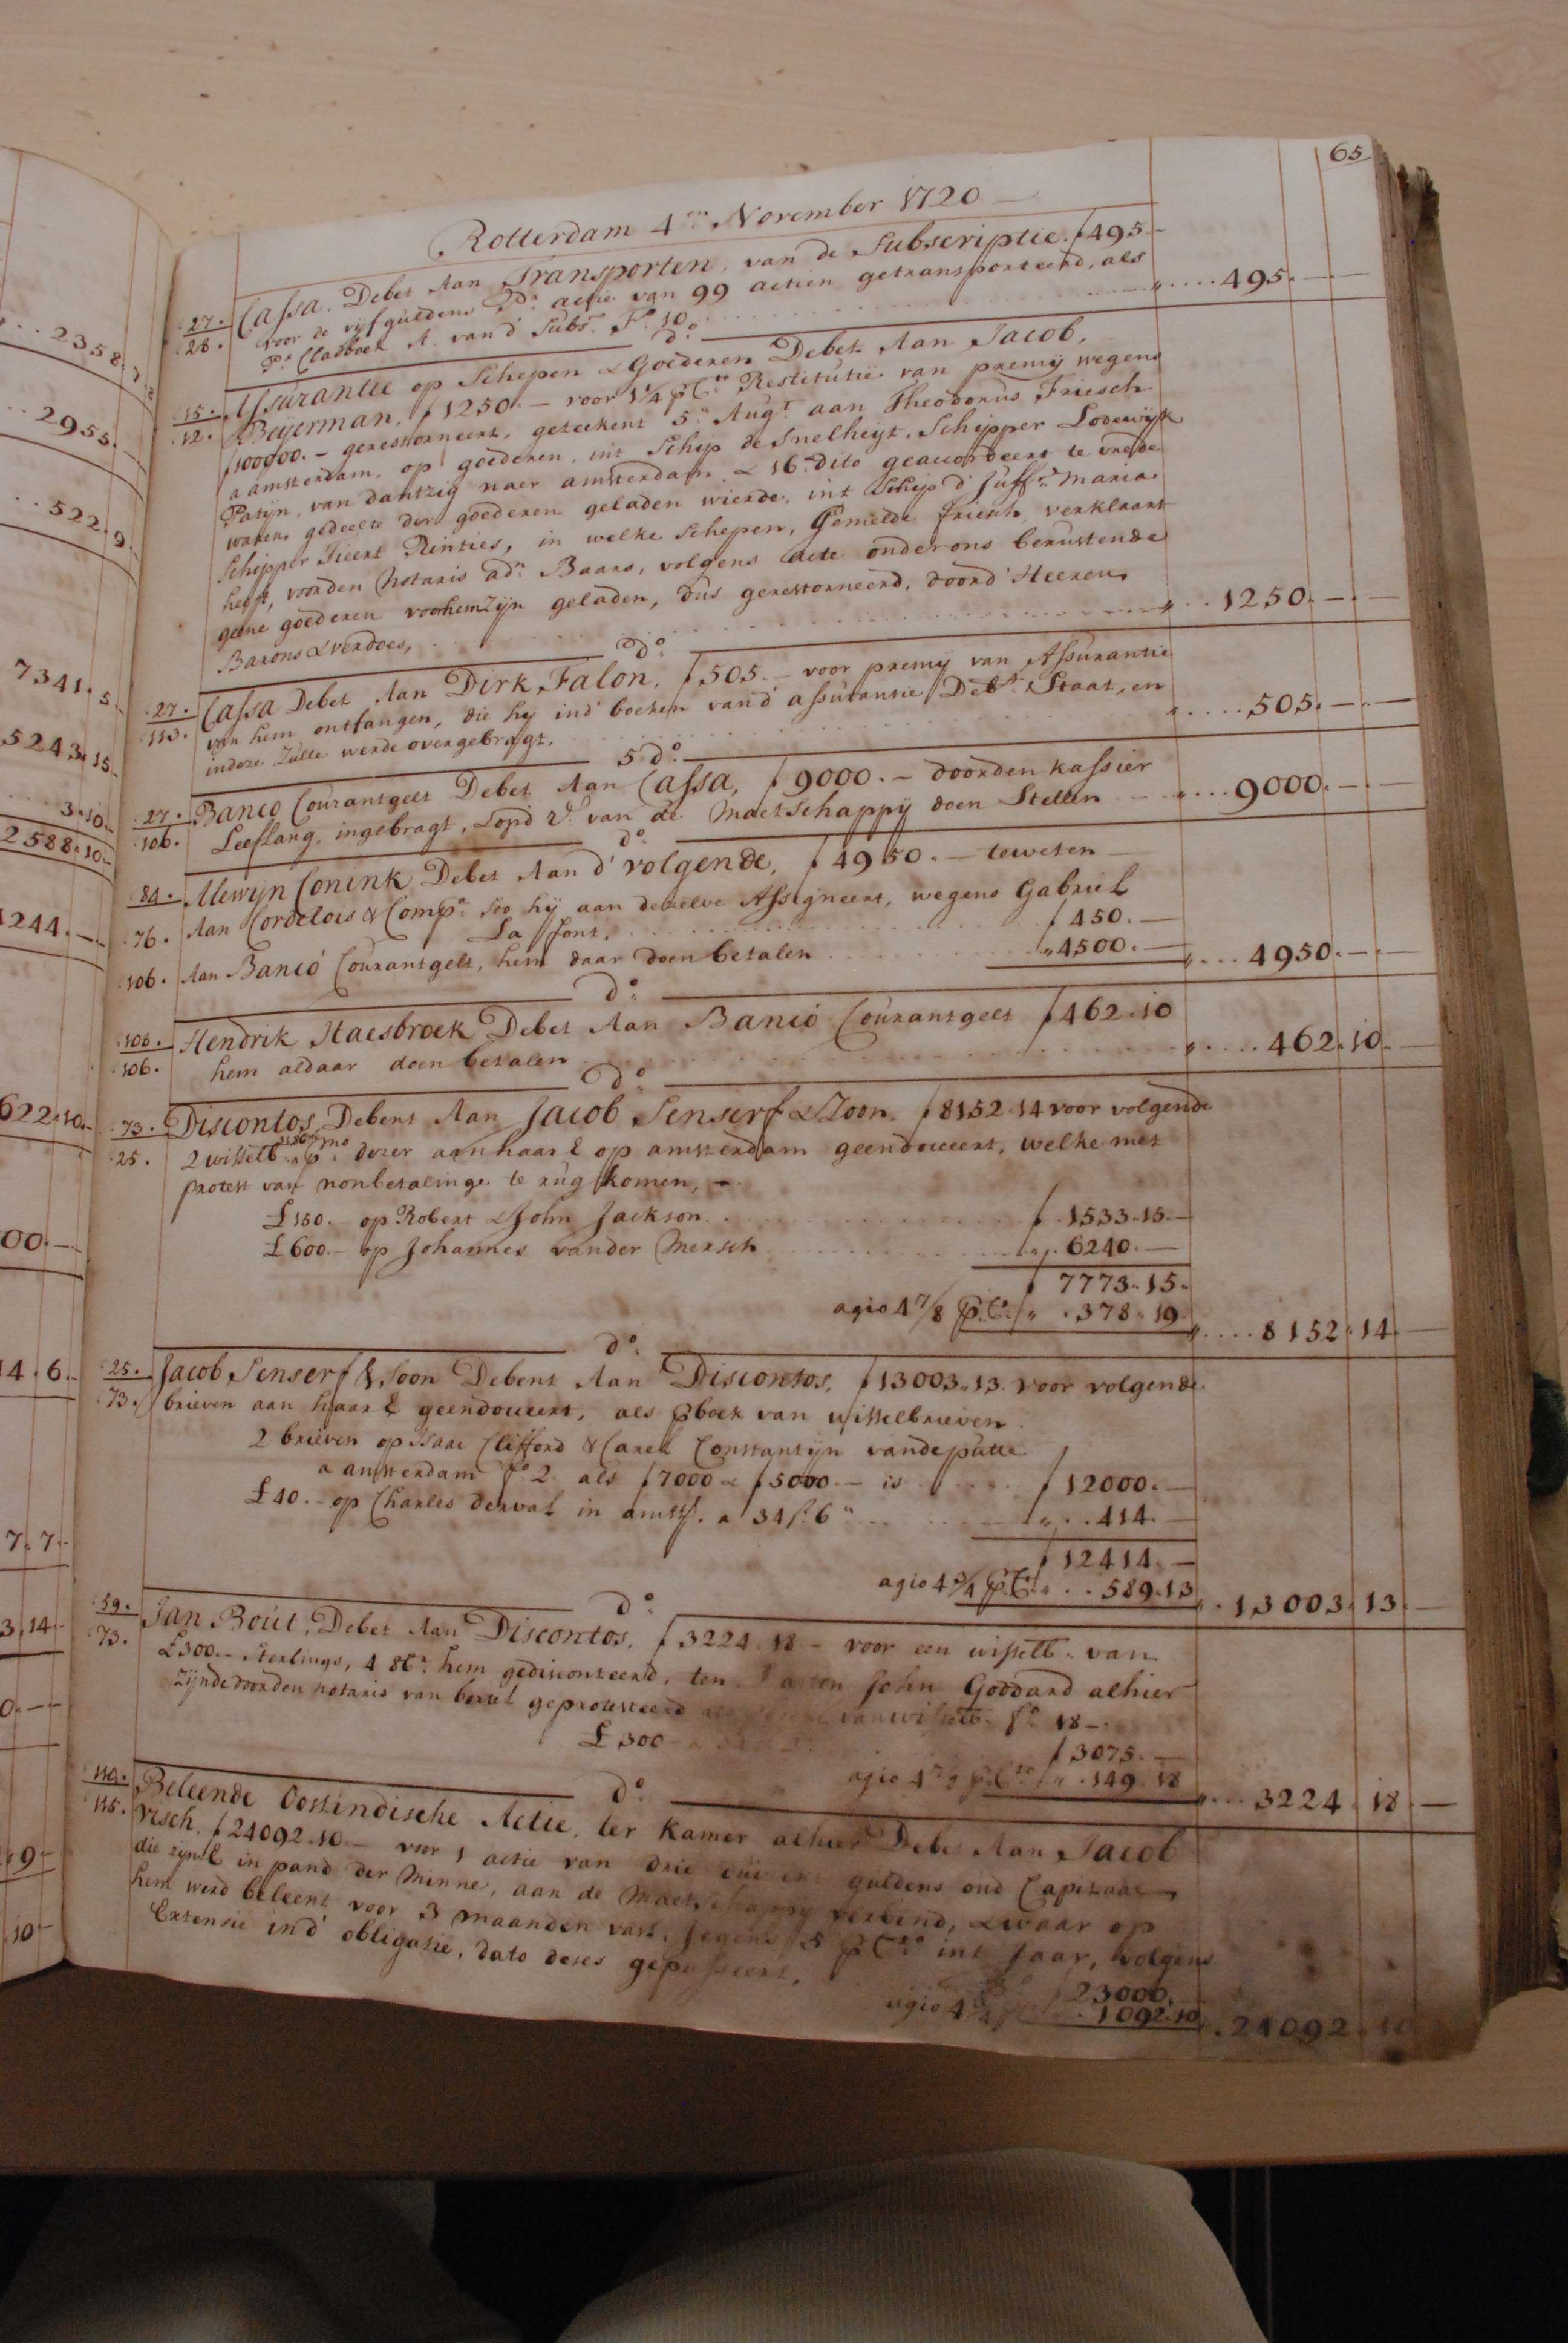 2358.7
2955.
522.9
7341.5
5243.15
3.10
2588.10
1244.
622.10
00.
14.6
7.7
3.14
0.
9
10
65
Rotterdam 4en November 1720
27. Cassa. Debet Aan Transporten, van de Subscriptie. ƒ495.-
28. voor de vijfguldens Pr. actie van 99 actien getransporteerd, als
Pr. Cladboek A. van d' Subs. Fo. 10. 495.
do.
15. Assurantie op Schepen & Goederen Debet Aan Jacob,
12. Beyerman, ƒ1250.- voor 1¼ PCto Restitutie van premij wegens
ƒ100000.- gerestorneert, geteekent 5n Augt. aan Theodorus Friesch
a amsterdam, op goederen, int Schip de Snelheijt, Schipper Lodewijk
Patijn, van dantzig naer amsterdam & 16. dito geaccordeert te
gedeelte der goederen geladen wierde, int Schip d' Juffr. Maria
Schipper Rinties, in welke Schepen, Gemelde Friesch verklaart
heeft, voorden Notaris adn. Baars, volgens acte onder ons berustende
geene goederen voorhem Zijn geladen, dus gerestorneerd, doord' Heeren
Barons & verdoes, 1250.
do.
27. Cassa Debet Aan Dirk Falon, ƒ505.- voor premij van Assurantie
113. van hem ontfangen, die hij ind' boeken vand' assurantie Debt. Staat, en
indeze Zulle werde overgebragt. 505.
5 do.
27. Banco Courantgelt Debet Aan Cassa, ƒ9000.- doorden kassier
106. Leeflang, ingebragt, & opd van de Maetschappij doen Stellen 9000.
do.
84. Alewijn Conink Debet Aan d' volgende, ƒ4950.- teweten
76. Aan Cordelois & Compa. soo hij aan dezelve Assigneert, wegens Gabriel
La font, ƒ450.-
106. Aan Banco Courantgelt, hem daar doen betalen 4500.- 4950.
do.
108. Hendrik Haesbroek Debet Aan Banco Courantgelt ƒ462.10
106. hem aldaar doen betalen 462.10
do.
73. Discontos, Debent Aan Jacob Senserf & Zoon. ƒ8152.14 voor volgende
25. 2 wisselb. pmo. dezer aan haar E op amsterdam geendoceert, welke met
protest van nonbetalinge te rug komen,
£150.- op Robert & John Jackson ƒ1533.15.-
£600.- op Johannes vander Mersch 6240.-
ƒ7773.15.
agio 4⅞ P.Co. 378.19 8152.14
do.
25. Jacob Senserf & Soon Debent Aan Discontos, ƒ13003.13. voor volgende
73. brieven aan haar E geendoceert, als Pboek van wisselbrieven
2 brieven op Isaac Clifford & Carel Constantijn vandeputte
a amsterdam fo. 2 als ƒ7000 & ƒ5000.- is ƒ12000.-
£40.- op Charles Derval in amst. a 34ſ.6 414.-
ƒ12414.-
agio 4¾ P.Co. 589.13 13003.13
do.
59. Jan Bout, Debet Aan Discontos, ƒ3224.18.- voor een wisselb. van
73. £300.- Sterlings, 4 8br. hem gedisconteerd, ten John Goddard alhier
Zijnde doorden notaris van bortel geprotesteerd van wisselb. fo. 18.-
£300 ƒ3075.-
agio 4⅞ P.Cto. 149.18 3224.18
do.
114. Beleende Oostindische Actie, ter kamer alhier Debet Aan Jacob
115. Visch. ƒ24092.10.- voor 1 actie van drie guldens oud Capitaal
die zijn E in pand der Minne, aan de Maetschappij verbind, & waar op
hem werd beleent voor 3 maanden vast, Jegens 5 P.Cto int Jaar, volgens
Extensie ind' obligatie, dato deses gepasseert, ƒ23000.
agio 4¾ 1092.10 24092.10